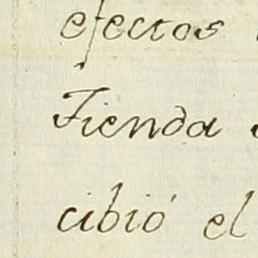 efectos
Tienda
cibió el